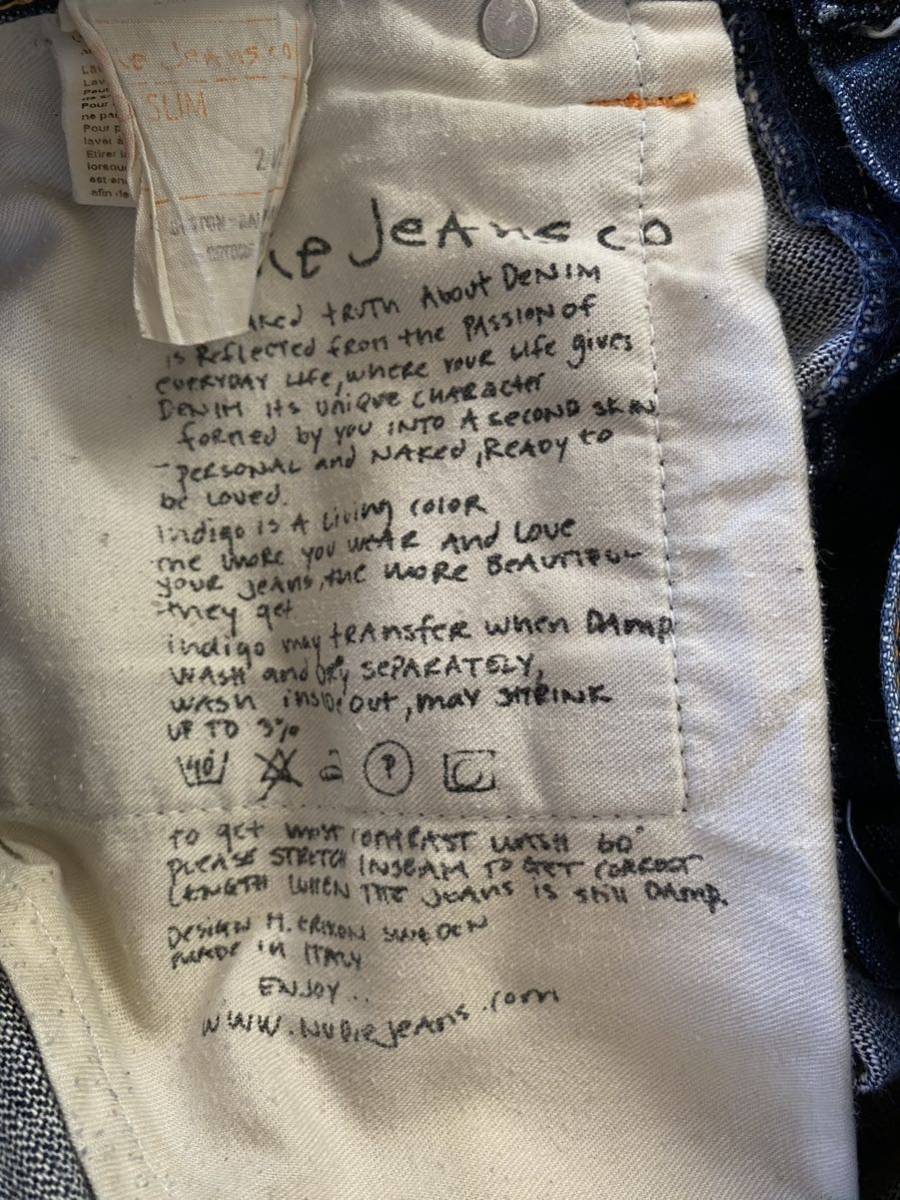 Jeans co
SLIM
Jeans co
truth About Denim
is Reflected from the Passion of
everyday life, where your life gives
Denim its unique character
formed by you into a second skin
- personal and naked, ready to
be loved.
Indigo is a living color
The more you wear and love
your jeans, the more beautiful
they get
indigo may transfer when Damp
Wash and Dry SEPARATELY,
wash inside out, may SHRINK
UP TO 3%
40
P
To get most contrast wash 60°
PLEASE STRETCH INSEAM TO GET CORRECT
LENGTH WHEN THE Jeans is still Damp.
Design M. Erixon Sweden
Made in Italy
ENJOY..
www.nudiejeans.com